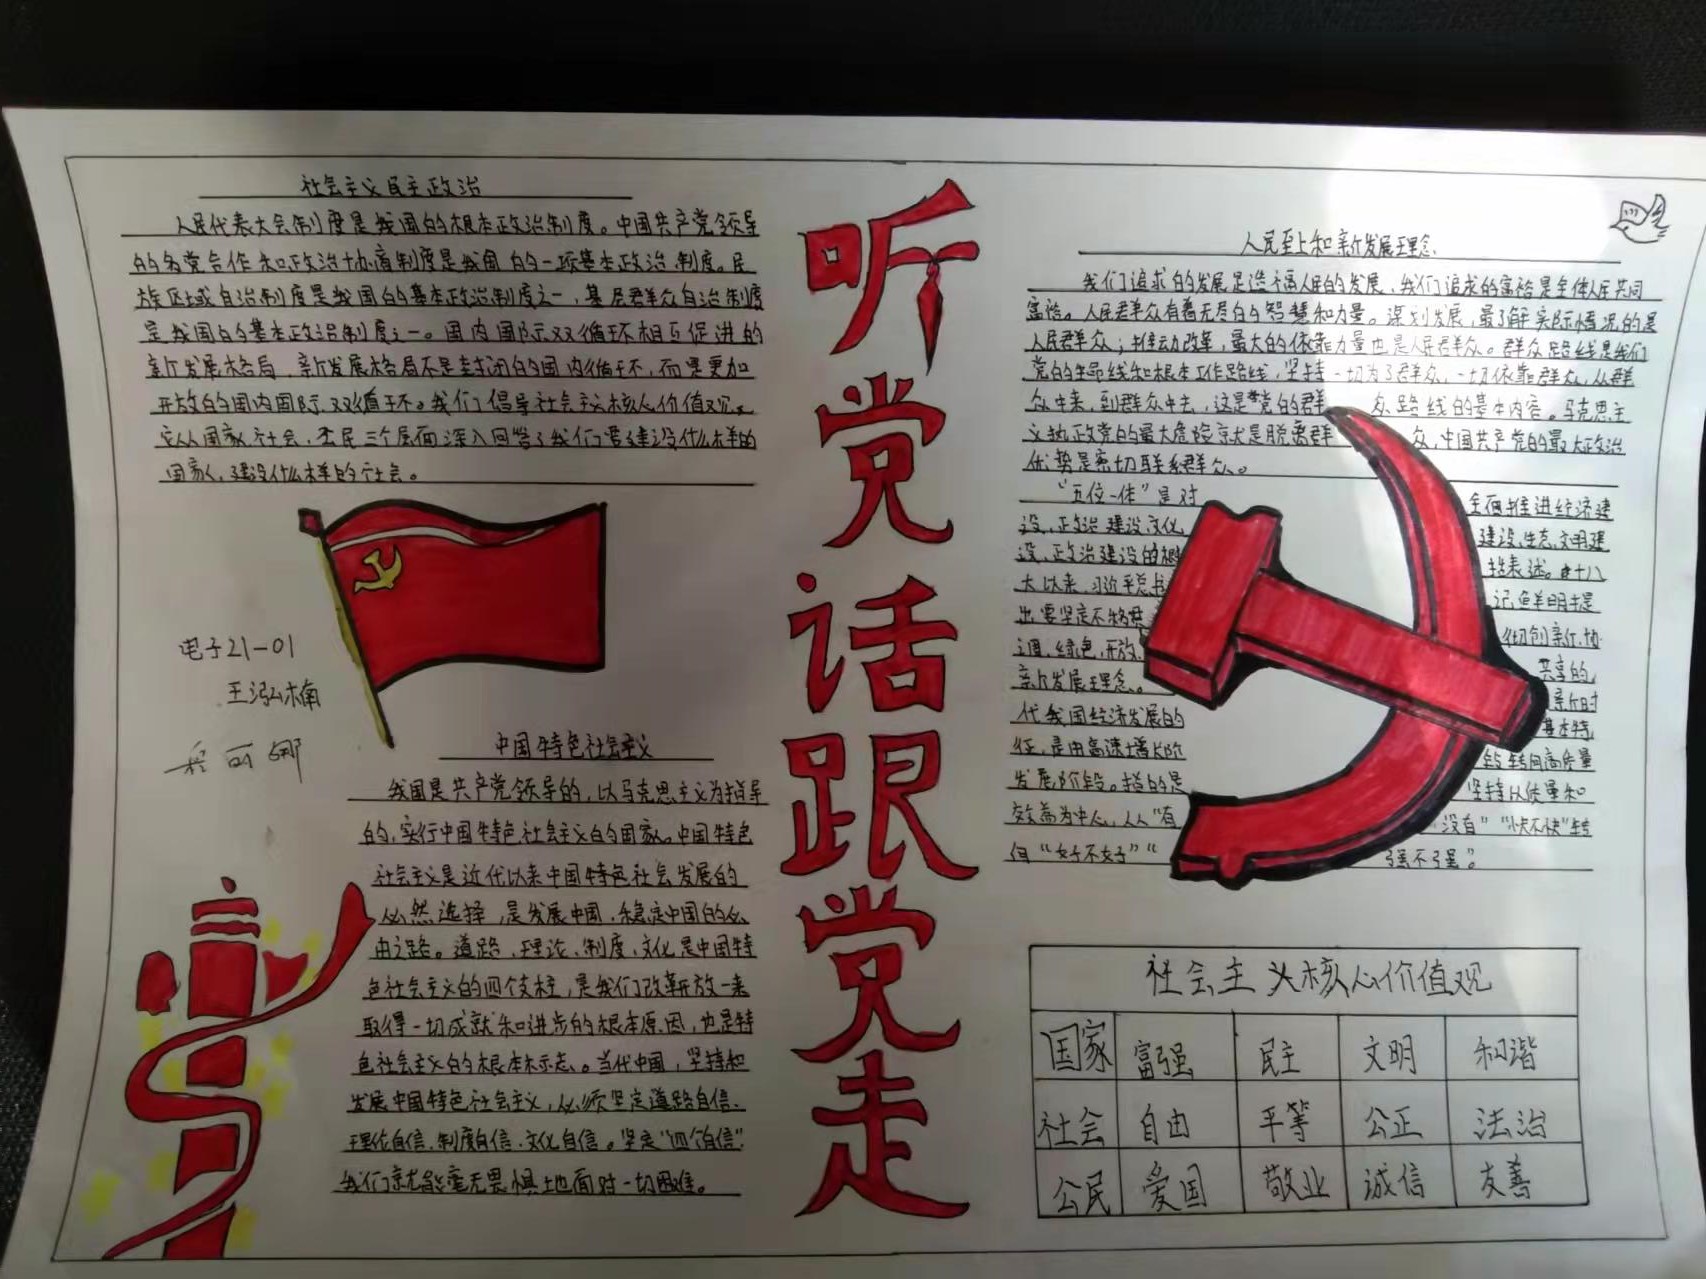 社会主义民主政治
人民代表大会制度是我国的根本政治制度。中国共产党领导
的多党合作和政治协商制度是我国的一项基本政治制度。民
族区域自治制度是我国的基本政治制度之一，基层群众自治制度
是我国的基本政治制度之一。国内国际双循环相互促进的
新发展格局，新发展格局不是封闭的国内循环，而是更加
开放的国内国际双循环。我们倡导社会主义核心价值观，
从国家社会，公民三个层面深入回答了我们要建设什么样的
国家，建设什么样的社会。
电子21-01
王泓楠
丽娜
中国特色社会主义
我国是共产党领导的，以马克思主义为指导
的，实行中国特色社会主义的国家。中国特色
社会主义是近代以来中国特色社会发展的
必然选择，是发展中国，稳定中国的必
由之路。道路，理论，制度，文化是中国特
色社会主义的四个支柱，是我们改革开放一来
取得一切成就和进步的根本原因，也是特
色社会主义的根本标志。当代中国，坚持和
发展中国特色社会主义，必须坚定道路自信、
理伦自信、制度自信、文化自信。坚定“四个自信”
我们就能毫无畏惧土地面对一切困难。
听党话跟党走
人民至上和新发展理念
我们追求的发展是造福人民的发展，我们追求的富裕是全体人民共同
富裕。人民群众有着无尽的智慧和力量。谋划发展，最了解实际情况的是
人民群众；推动改革，最大的依靠力量也是人民群众。群众路线是我们
党的生命线和根本工作路线，坚持一切为了群众，一切依靠群众，从群
众中来，到群众中去，这是党的群众路线的基本内容。马克思主
义执政党的最大危险就是脱离群众，中国共产党的最大政治
优势是密切联系群众。
“五位一体”是对全面推进经济建
设、政治建设、文化建设、生态文明建
设、政治建设的概括表述。十八
大以来，习近平总书记鲜明提
出要坚定不移贯彻创新、协
调、绿色、开放、共享的
新发展理念。新时
代我国经济发展的基本特
征，是由高速增长阶段转向高质量
发展阶段。指的是坚持以质量和
效益为中心，从“有没有”“快不快”转
向“好不好”“强不强”。
社会主义核心价值观
国家 富强 民主 文明 和谐
社会 自由 平等 公正 法治
公民 爱国 敬业 诚信 友善